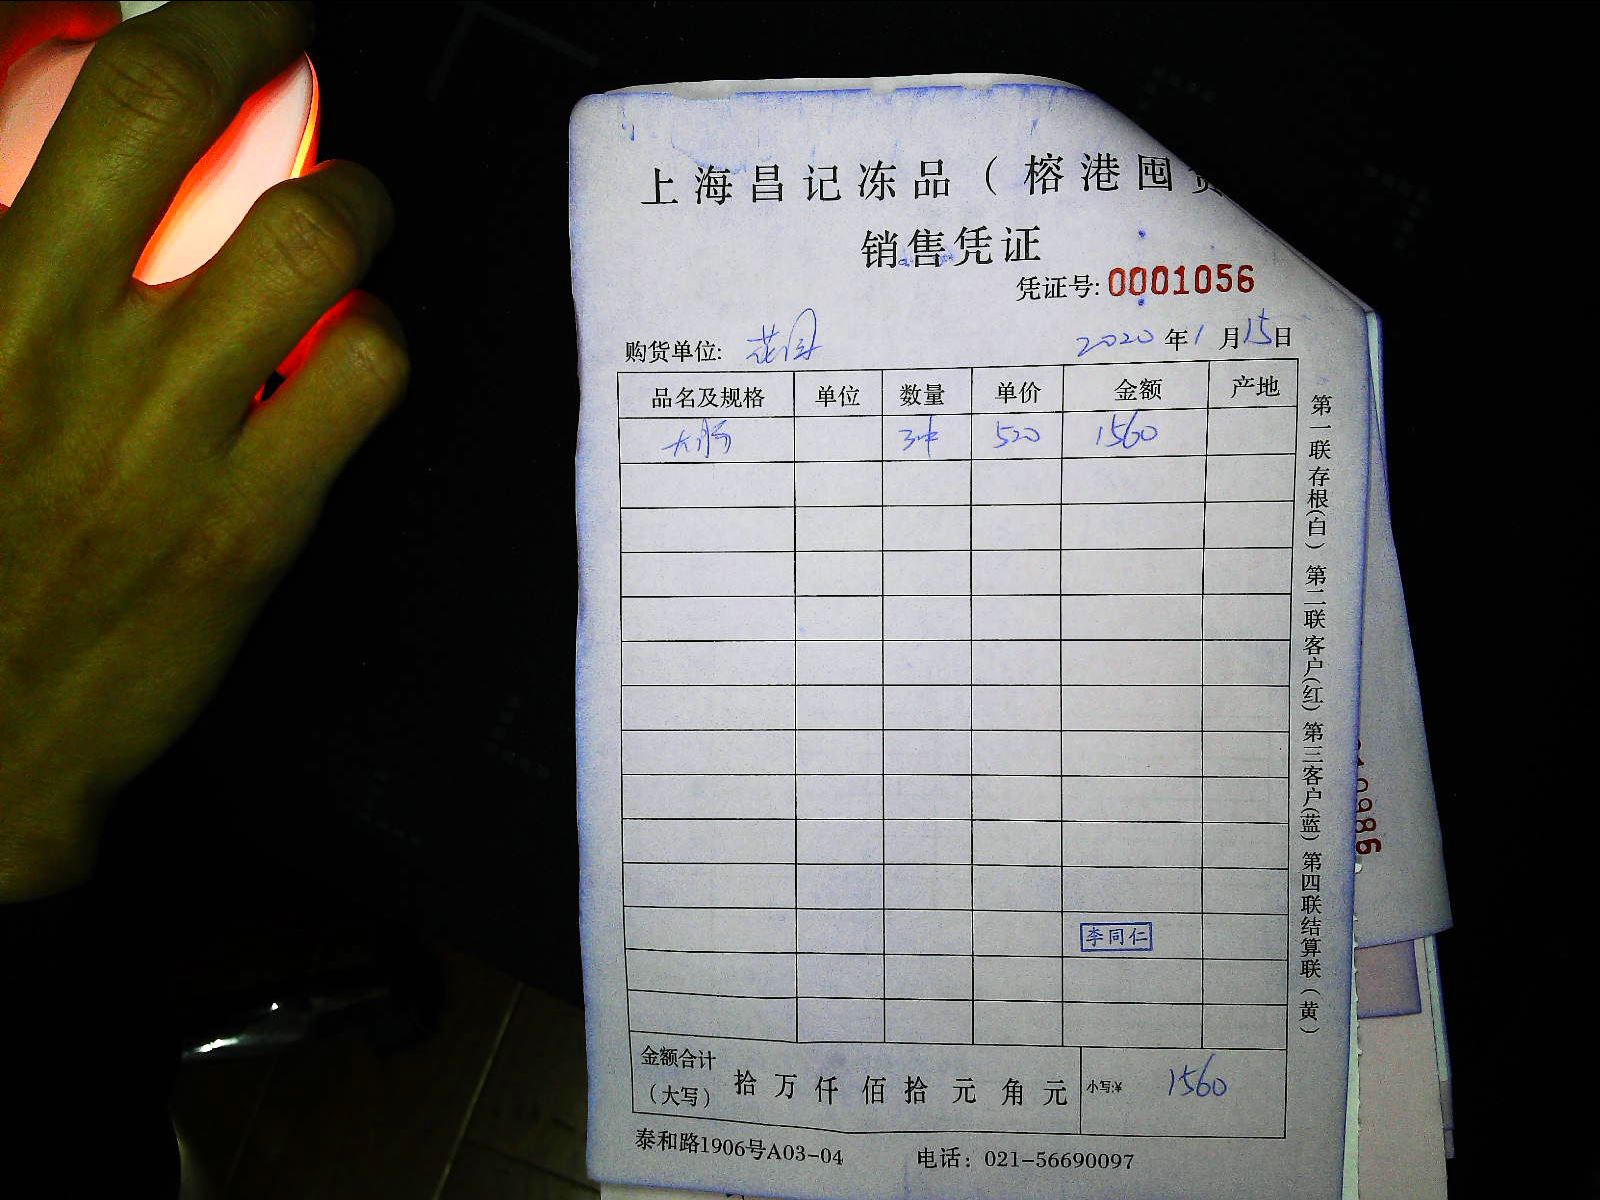 上海昌记冻品（榕港囤
销售凭证
凭证号:0001056
购货单位: 花园 2020年1月15日
品名及规格 单位 数量 单价 金额 产地
大肠 3件 520 1560
李同仁
金额合计
（大写） 拾 万 仟 佰 拾 元 角 元 小写:¥ 1560
泰和路1906号A03-04 电话：021-56690097
第一联存根(白) 第二联客户(红) 第三客户(蓝) 第四联结算联(黄)